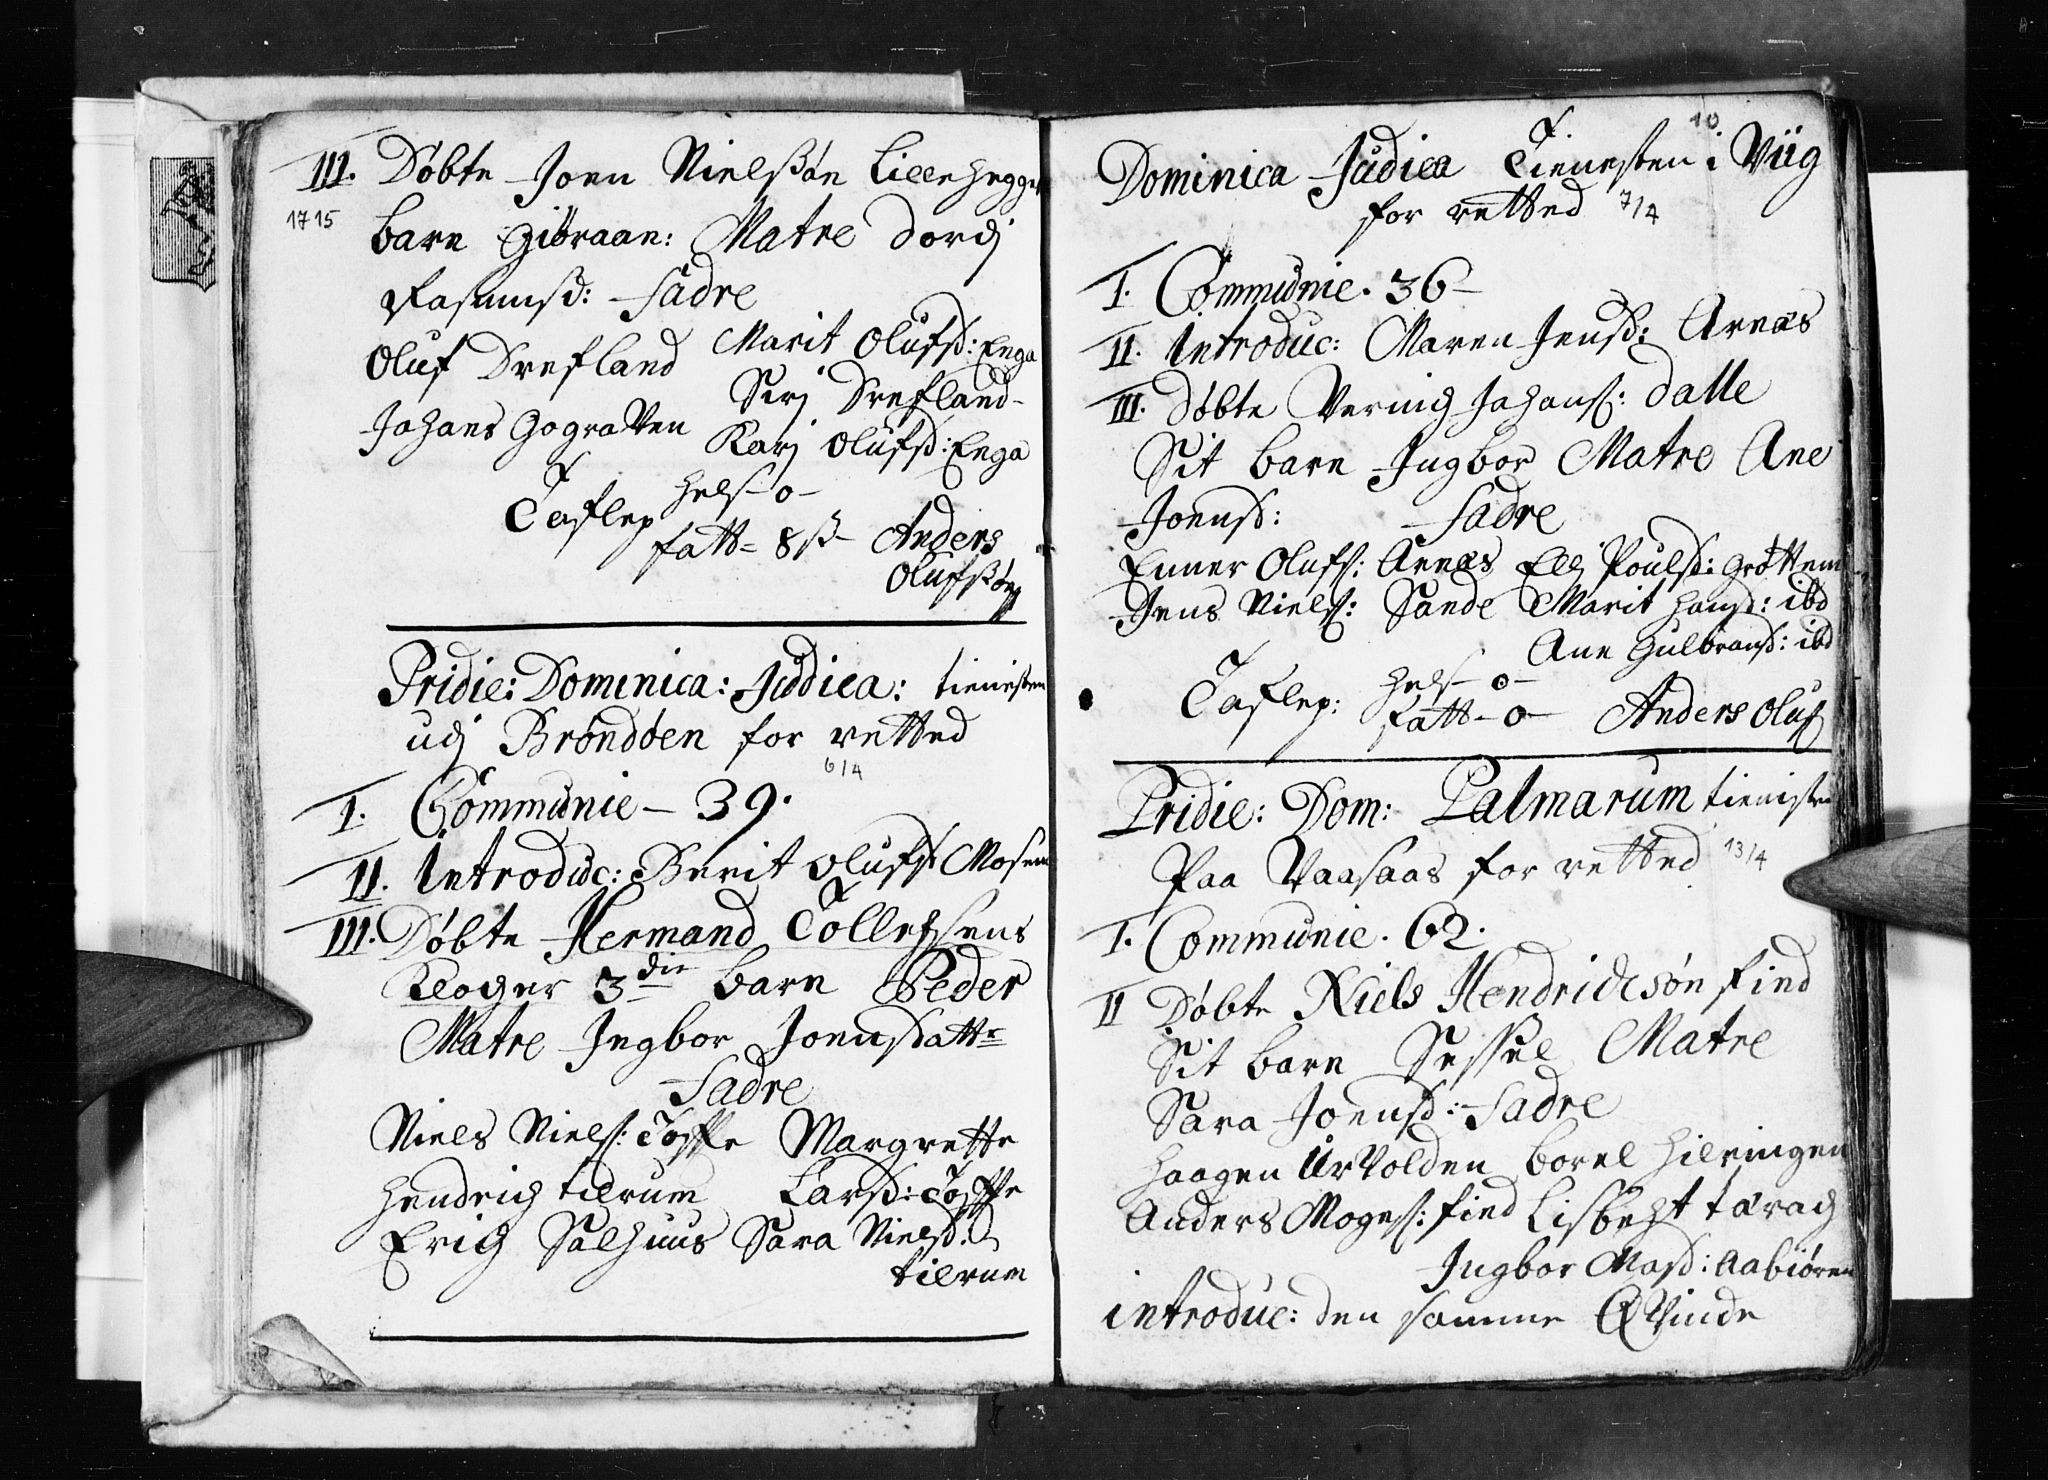 III. Døbte Joen Nielssøn Lillehegge
1715
barn Giøraan: Matre Dordj
Rasmusd: Fadre
Oluf Drefland Marit Olufsd: Enga
Sirj Drefland
Johans Gograven Karj Olufsd: Enga
Taflep hels - o -
fatt = 8 ß - Anders
Olufssøn
Pridie: Dominica: Judica: tienisten
udj Brøndøen for retted
6/4
I. Communie - 39.
II. Introduc: Berit Olufsd Mosen
III. Døbte Hermand Tollefsens
Klocher 3die barn Peder
Matre Ingbor Joensdatt:
Fadre
Niels Niels: Toffte Margrette
Hendrich tilrum Larsd: Toffte
Erich Salhuus Sara Nielsd:
tilrum
10
Dominica Judica Tienesten i Viig
for retted 7/4
I. Communie. 36 -
II. Introduc: Maren Jensd: Arnæs
III. Døbte Vernich Johans: Dalle
Sit barn Ingbor Matre Ane
Joensd: Fadre
Enner Olufs: Arnæs Ellj Poulsd: Grøttem
Jens Niels: Sande Marit Hansd: ibd
Ane Gulbransd: ibd
Taflep: hels - o -
fatt - o - Anders Oluf
Pridie: Dom: Palmarum tienisten
Paa Vaasaas for retted 13/4
I. Communie. 62.
II Døbte Niels Hendrichsøn find
Sit barn Sessel Matre
Sara Joensd: Fadre
Haagen Urvolden Borel Hilringen
Anders Moges: find Lisbeht tærach
Ingbor Masd: Aabiøren
introduc: den samme Qvinde